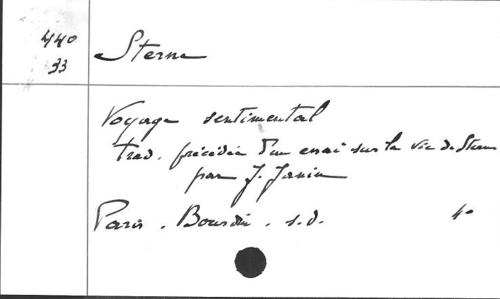 440
33
Sterne
Voyage sentimental
trad. précédée d'un essai sur la vie de Sterne
par J. Janin
Paris. Bourdin. s.d. 4°